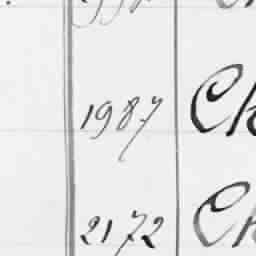 1987 Ch
2172 Ch